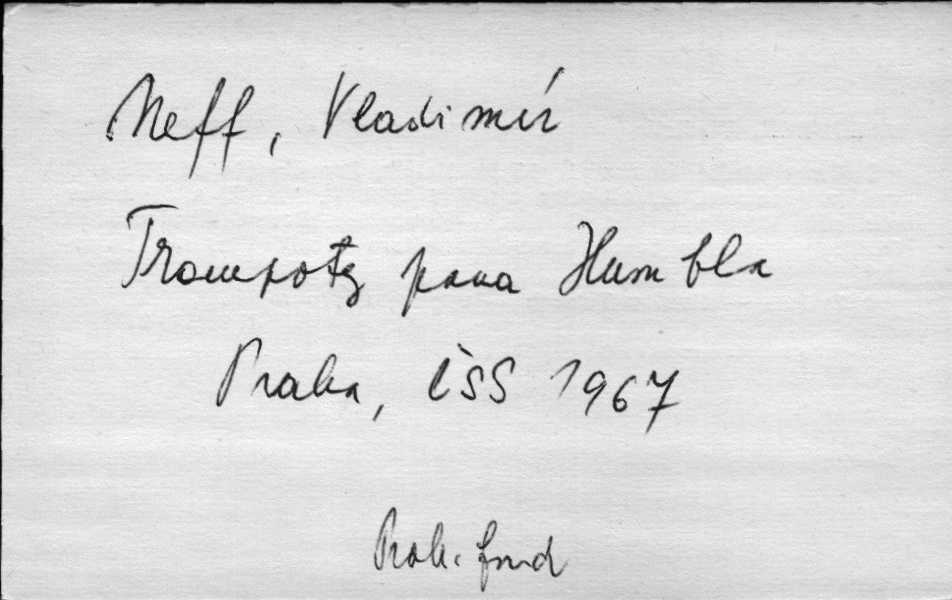 Neff, Vladimír
Trampoty pana Humbla
Praha, ČSS 1967
Proh. fond